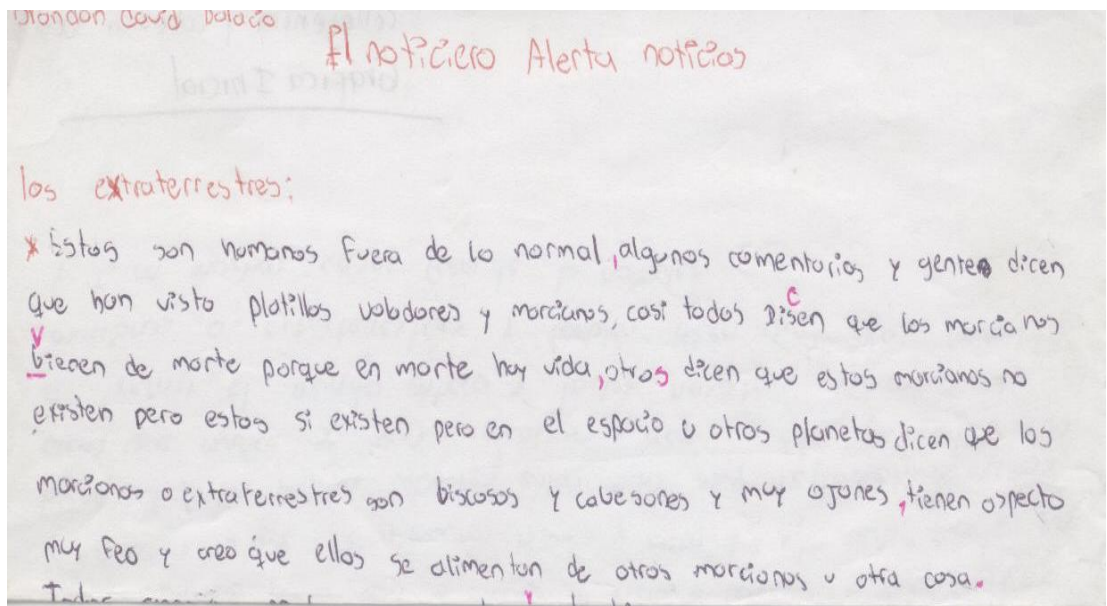 David
El noticiero Alerta noticias
los extraterrestres:
* Estos son humanos fuera de lo normal, algunos comentarios y gente dicen
que han visto platillos voladores y marcianos casi todos Disen que los marcianos
c
v
bienen de marte porque en marte hay vida, otros dicen que estos marcianos no
existen pero estos si existen pero en el espacio u otros planetas dicen que los
marcianos o extraterrestres son biscosos y cabesones y muy ojones, tienen aspecto
muy feo y creo que ellos se alimentan de otros marcianos u otra cosa.